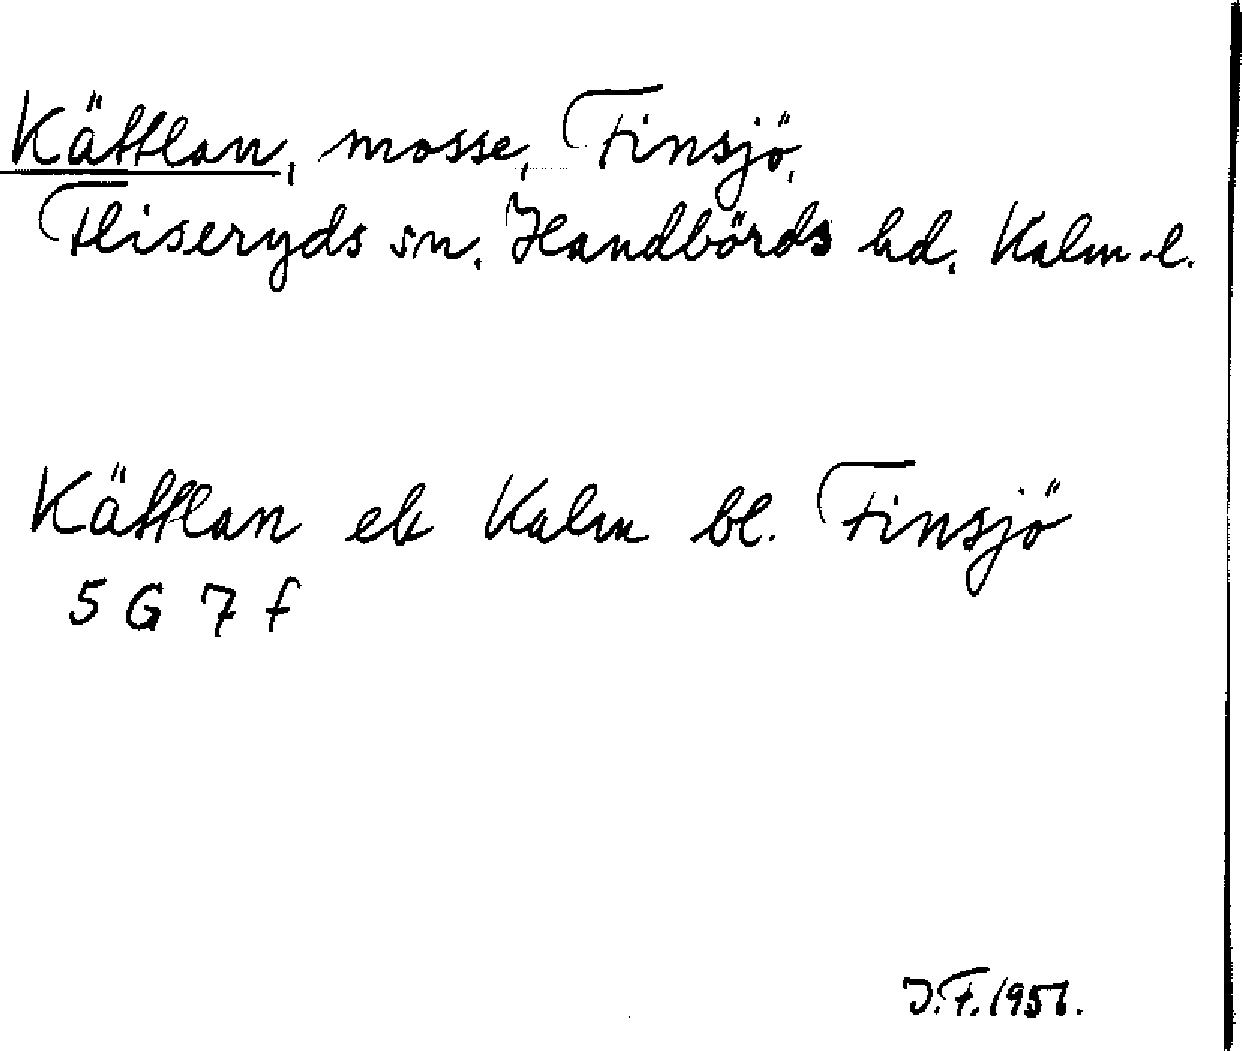 Kättlan, mosse, Finsjö,
Fliseryds sn, Handbörds hd, Kalm. l.
Kättlan ek Kalm bl. Finsjö
5 G 7 f
J.F. 1956.